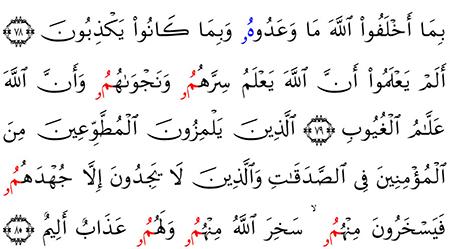 بِمَا أَخْلَفُواْ ٱللَّهَ مَا وَعَدُوهُۥ وَبِمَا كَانُواْ يَكْذِبُونَ ٧٨
أَلَمْ يَعْلَمُواْ أَنَّ ٱللَّهَ يَعْلَمُ سِرَّهُمُۥ وَنَجْوَىٰهُمُۥ وَأَنَّ ٱللَّهَ
عَلَّٰمُ ٱلْغُيُوبِ ٧٩ ٱلَّذِينَ يَلْمِزُونَ ٱلْمُطَّوِّعِينَ مِنَ
ٱلْمُؤْمِنِينَ فِى ٱلصَّدَقَٰتِ وَٱلَّذِينَ لَا يَجِدُونَ إِلَّا جُهْدَهُمُۥ
فَيَسْخَرُونَ مِنْهُمُۥ ۙ سَخِرَ ٱللَّهُ مِنْهُمُۥ وَلَهُمُۥ عَذَابٌ أَلِيمٌ ٨٠